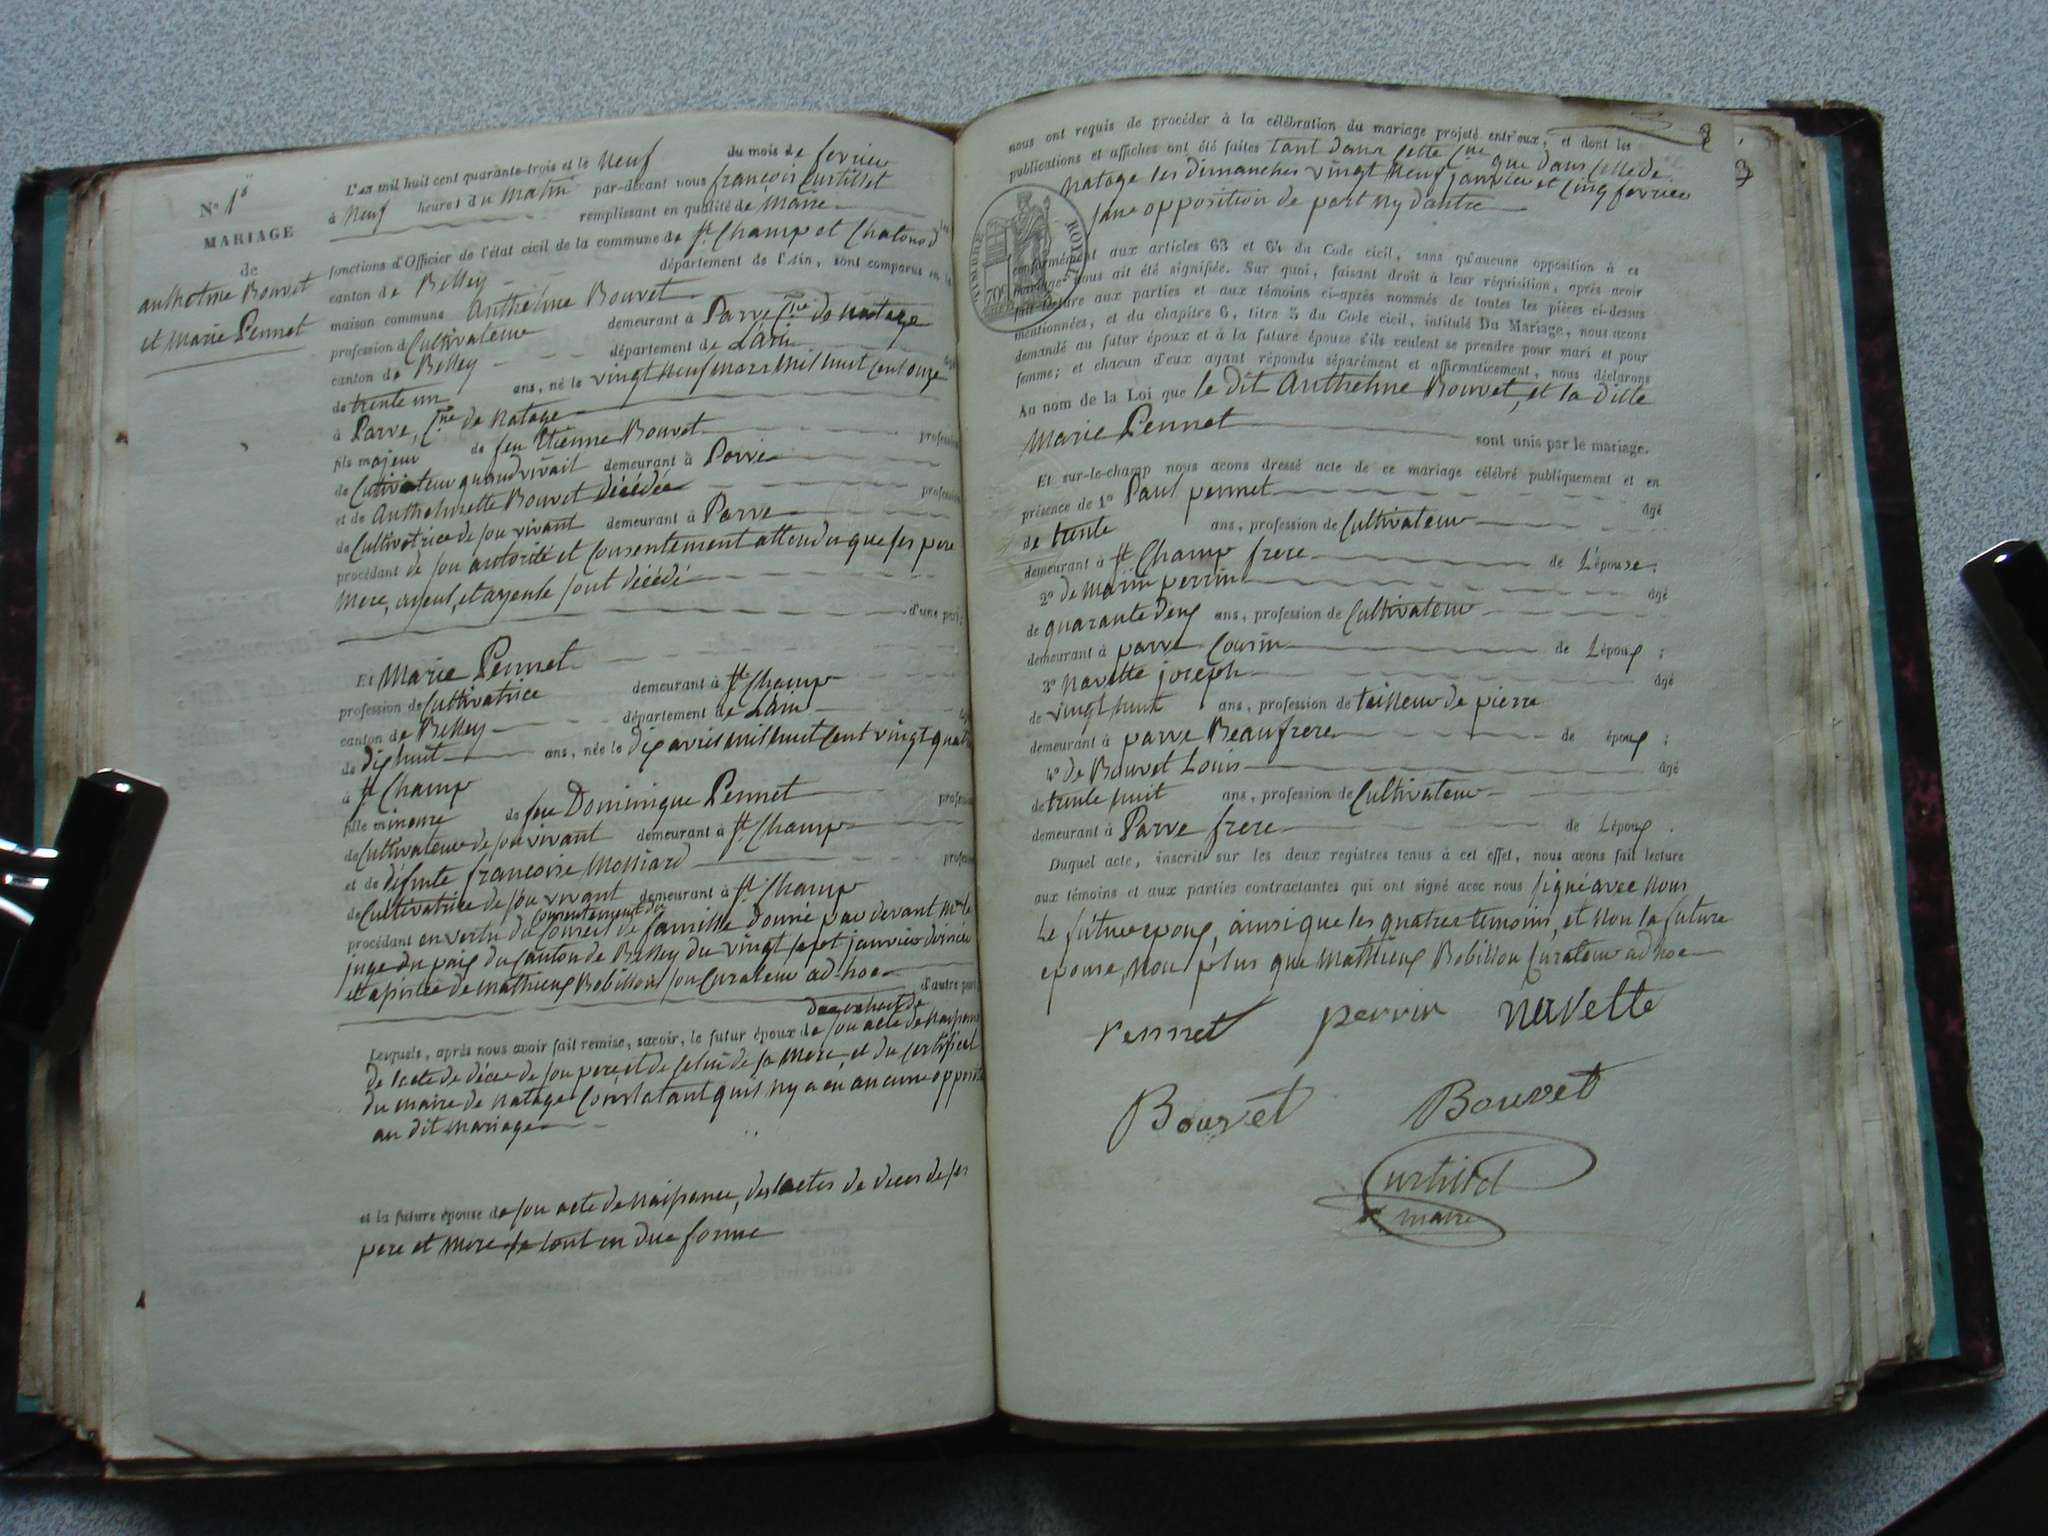 N° 1er
MARIAGE
de
anthelme Bouvet
et Marie Pennet
L'an mil huit cent quarante-trois et le neuf du mois de fevrier
à neuf heures du matin par-devant nous françois Curtillet
remplissant en qualité de Maire
fonctions d'Officier de l'état civil de la commune de St Champ et Chatonod
canton de Belley département de l'Ain, sont comparus en la
maison commune Anthelme Bouvet
profession de Cultivateur demeurant à Parve Cne de natage
canton de Belley département de L'ain âgé
de trente un ans, né le vingt neuf mars mil huit cent onze
à Parve, Cne de natage
fils majeur de feu Etienne Bouvet profession
de Cultivateur quand vivait demeurant à Parve
et de Anthelmette Bouvet décédée profession
de Cultivatrice de son vivant demeurant à Parve
procédant de son autorité et Consentement attendu que ses pere
mere, ayeul, et ayeule sont décédé
d'une part;
Et Marie Pennet
profession de Cultivatrice demeurant à St Champ
canton de Belley département de L'ain
de dix huit ans, née le dix avril mil huit cent vingt quatre
à St Champ
fille mineure de feu Dominique Pennet profession
de Cultivateur de son vivant demeurant à St Champ
et de défunte françoise Molliard profession
de Cultivatrice de son vivant demeurant à St Champ
consentement du
procédant en vertu du Conseil de famille donné par devant Mr le
juge du paix du Canton de Belley du vingt sept janvier dernier
et assistée de mathieux Bobillon son Curateur ad-hoc d'autre part
Lesquels, après nous avoir fait remise, savoir, le futur époux de son acte de naissance
de l'acte de décès de son pere, et de celui de sa mere, et du certificat
du maire de natage Constatant qu'il n'y a eu aucune opposition
au dit mariage
et la future épouse de son acte de naissance, des actes de deces de ses
pere et mere le tout en due forme
nous ont requis de procéder à la célébration du mariage projeté entr'eux, et dont les
publications et affiches ont été faites tant dans cette Cne que dans celle de
natage les dimanches vingt neuf janvier et cinq fevrier
sans opposition de part ny d'autre
TIMBRE ROYAL
70c
conformément aux articles 63 et 64 du Code civil, sans qu'aucune opposition à ce
mariage nous ait été signifiée. Sur quoi, faisant droit à leur réquisition, après avoir
fait lecture aux parties et aux témoins ci-après nommés de toutes les pièces ci-dessus
mentionnées, et du chapitre 6, titre 5 du Code civil, intitulé Du Mariage, nous avons
demandé au futur époux et à la future épouse s'ils veulent se prendre pour mari et pour
femme; et chacun d'eux ayant répondu séparément et affirmativement, nous déclarons
Au nom de la Loi que le dit Anthelme Bouvet, et la ditte
Marie Pennet sont unis par le mariage.
Et sur-le-champ nous avons dressé acte de ce mariage célébré publiquement et en
présence de 1° Paul pennet âgé
de trente ans, profession de Cultivateur
demeurant à St Champ frere de L'épouse;
2° de marin perrin âgé
de quarante deux ans, profession de Cultivateur
demeurant à parve Cousin de L'époux;
3° navette joseph âgé
de vingt huit ans, profession de tailleur de pierre
demeurant à parve Beaufrere de époux;
4° de Bouvet Louis âgé
de trente huit ans, profession de Cultivateur
demeurant à Parve frere de L'époux.
Duquel acte, inscrit sur les deux registres tenus à cet effet, nous avons fait lecture
aux témoins et aux parties contractantes qui ont signé avec nous signé avec nous
Le futur epoux, ainsi que les quatres temoins, et non la future
epouse, non plus que Mathieux Bobillon Curateur ad hoc
Pennet perrin navette
Bouvet Bouvet
Curtillet
maire